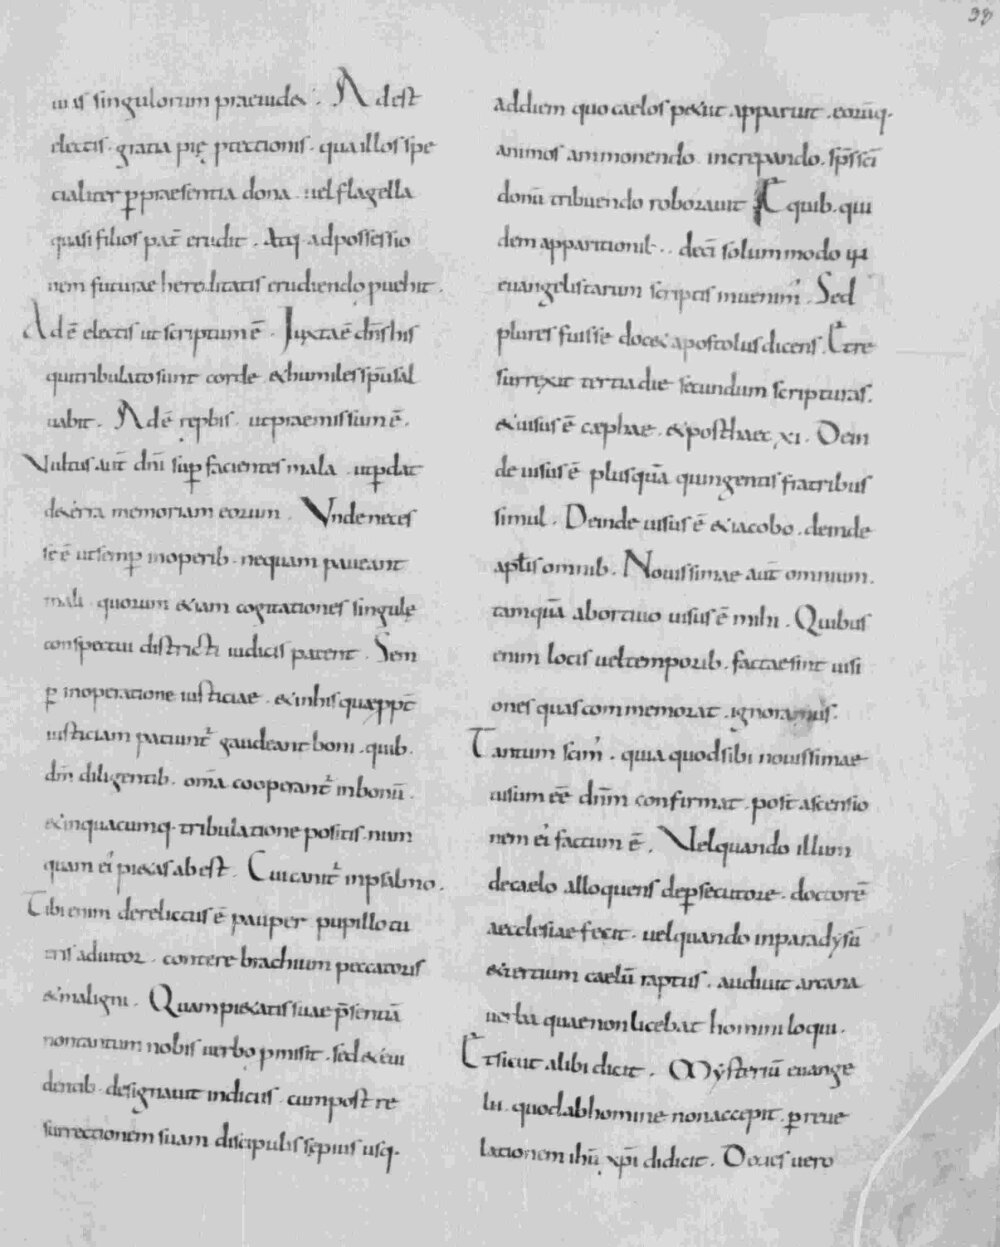 39
uias singulorum praeuidet. Adest
electis. gratia pię ptectionis. qua illos spe
cialiter ꝑ praesentia dona. uel flagella
quasi filios pat̄ erudit. Atq; ad possessio
nem futurae hereditatis erudiendo puehit.
Adē electis ut scriptum ē. Juxta ē dn̄s his
qui tribulato sunt corde. & humiles sp̄u sal
uabit. Adē repbis. ut praemissium ē.
Vultus aut̄ dn̄i suꝑ facientes mala. ut ꝑdat
de terra memoriam eorum. Vnde neces
se ē ut semꝑ in operib. nequam paueant
mali. quorum etiam cogitationes singulę
conspectui districti iudicis patent. Sem
ꝑ in operatione iusticiae. & in his quae ppt̄
iusticiam patiunt̄ gaudeant boni. quib.
dm̄ diligentib. om̄a cooperant̄ in bonū.
& in quacumq; tribulatione positis. num
quam ei pietas abest. Cui canit̄ in psalmo.
Tibi enim derelictus ē pauper pupillo tu
eris adiutor. contere brachium peccatoris
& maligni. Quam pietatis suae p̄sentiā
non tantum nobis uerbo pmisit. sed & eui
dentib. designauit indiciis. cum post re
surrectionem suam discipulis sępius usq;
ad diem quo caelos petiit apparuit. eorūq;
animos ammonendo. increpando. sp̄s sc̄i
donū tribuendo roborauit Et quib. qui
dem apparitionib.. deci solum modo iiii
euangelistarum scriptis inuenim'. Sed
plures fuisse docet apostolus dicens. Et re
surrexit tertia die secundum scripturas.
& uisus ē cephae. & post haec xi. Dein
de uisus ē plus quā quingentis fratribus
simul. Deinde uisus ē & iacobo. deinde
apl̄is omnib. Nouissimae aut̄ omnium.
tamquā abortiuo uisus ē mihi. Quibus
enim locis uel temporib. factae sint uisi
ones quas commemorat. ignoramus.
Tantum scim'. quia quod sibi nouissimae
uisum eē dn̄m confirmat. post ascensio
nem ei' factum ē. Vel quando illum
de caelo alloquens de ꝑsecutore. doctorē
aecclesiae fecit. uel quando in paradysū
& tertium caelū raptus. audiuit arcana
uerba quae non licebat homini loqui.
Et sicut alibi dicit. Mysteriū euange
lii. quod ab homine non accepit. ꝑ reue
lationem ihū xp̄i didicit. Decies uero